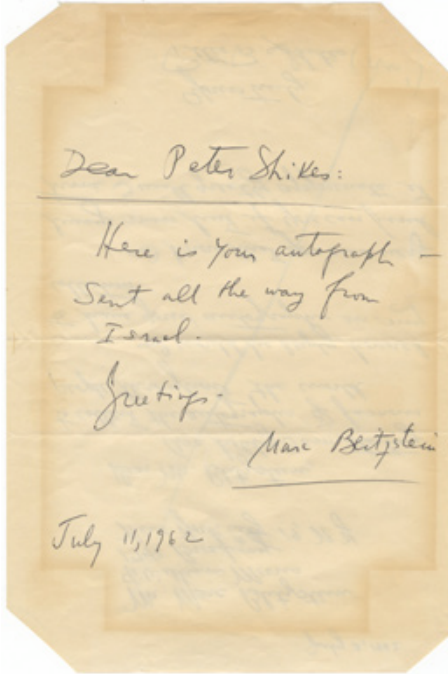 Dear Peter Shikes:
Here is your autograph –
Sent all the way from
Israel.
Greetings.
Marc Blitzstein
July 11, 1962